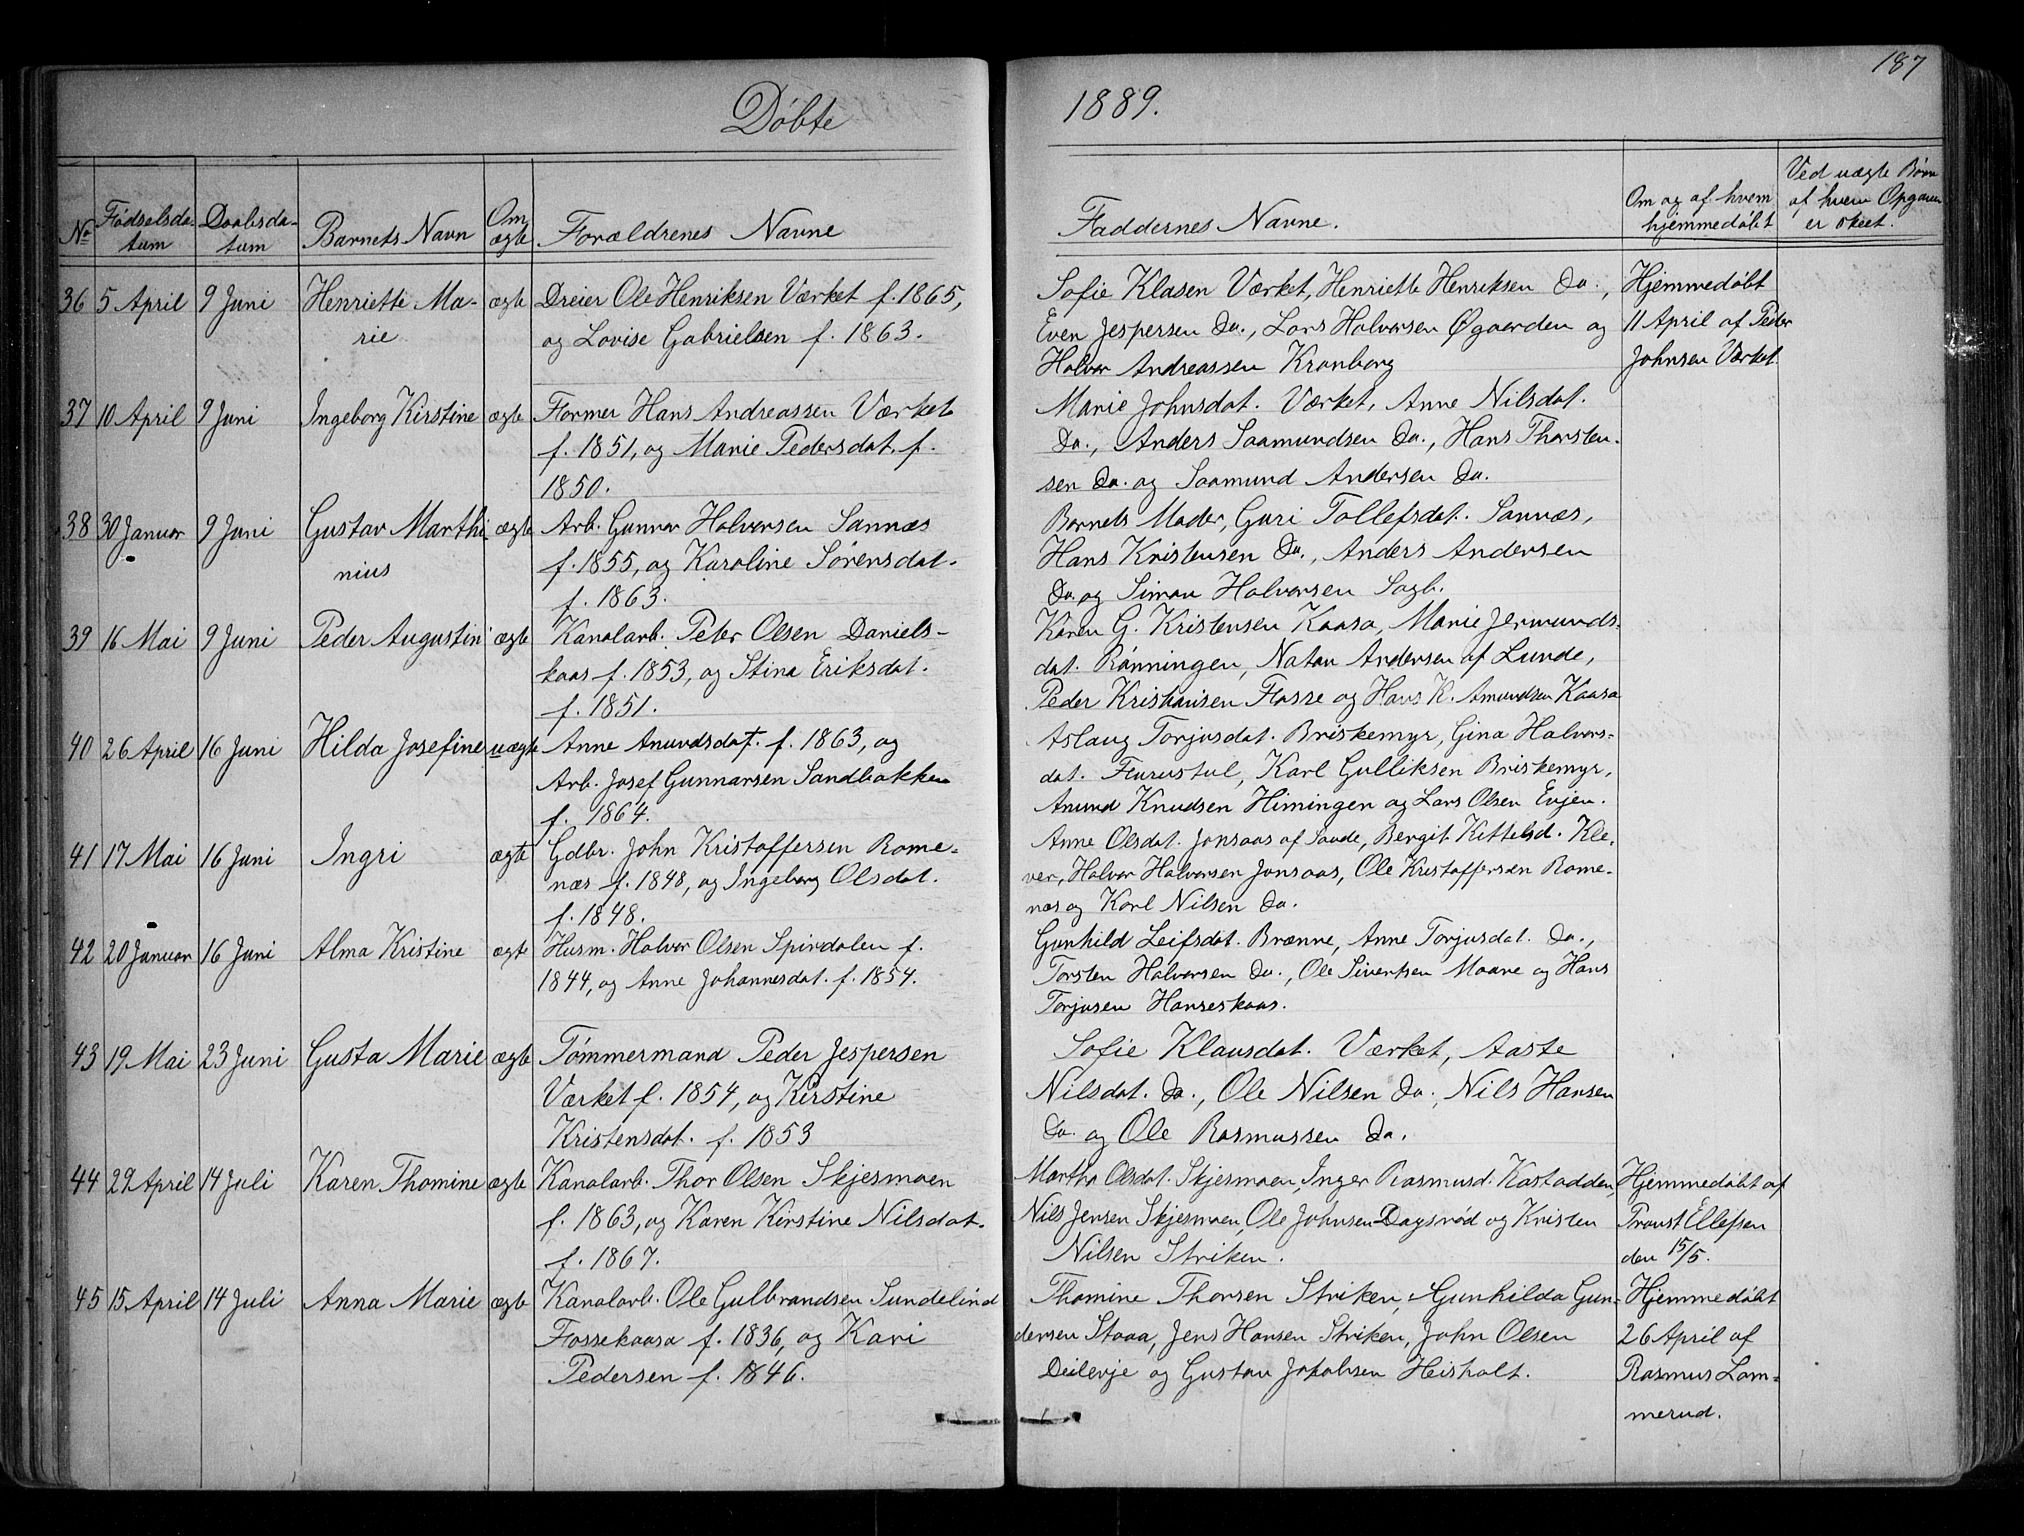 187
Døbte
1889.
No
Fødselsda-
tum
Daabsda-
tum
Barnets Navn
Om
ægte
Forældrenes Navne
Faddernes Navne.
Om og af hvem
hjemmedøbt
Ved uægte Børn
af hvem Opgaven
er skeet.
36 5 April 9 Juni Henriette Ma- ægte Dreier Ole Henriksen Værket f. 1865,
rie og Lovise Gabrielsen f. 1863.
Sofie Klasen Værket, Henriette Henriksen Do.,
Even Jespersen Do., Lars Halvorsen Øgaarden og
Halvor Andreassen Kranborg
Hjemmedøbt
11 April af Peder
Johnsen Værket
37 10 April 9 Juni Ingeborg Kirstine ægte Former Hans Andreassen Værket
f. 1851, og Marie Pedersdat. f.
1850.
Marie Johnsdat. Værket, Anne Nilsdat.
Do., Anders Saamundsen Do., Hans Thorsten-
sen Do. og Saamund Andersen Do.
38 30 Januar 9 Juni Gustav Marthi ægte Arb. Gunnar Halvorsen Sannæs
nius f. 1855, og Karoline Sørensdat.
f. 1863.
Barnets Moder, Guri Tollefsdat. Sannæs,
Hans Kristensen Do., Anders Andersen
Do. og Simon Halvorsen Sagb.
39 16 Mai 9 Juni Peder Augustin ægte Kanalarb. Peter Olsen Daniels-
kaas f. 1853, og Stina Eriksdat.
f. 1851.
Karen G. Kristensen Kaasa, Marie Jermunds-
dat. Rønningen, Natan Andersen af Lunde,
Peder Kristiansen Fosse og Hans K. Amundsen Kaasa
40 26 April 16 Juni Hilda Josefine uægte Anne Anundsdat. f. 1863, og
Arb. Josef Gunnarsen Sandbakken
f. 1864.
Aslaug Torjusdat. Briskemyr, Gina Halvors-
dat. Furustul, Karl Gulliksen Briskemyr,
Anund Knudsen Himingen og Lars Olsen Evjen.
41 17 Mai 16 Juni Ingri ægte Gdbr. John Kristoffersen Rome-
næs f. 1848, og Ingeborg Olsdat.
f. 1848.
Anne Olsdat. Jonsaas af Saude, Bergit Kittelsd. Kle-
ver, Halvor Halvorsen Jonsaas, Ole Kristoffersen Rome-
næs og Karl Nilsen Do.
42 20 Januar 16 Juni Alma Kristine ægte Husm. Halvor Olsen Spirdalen f.
1844, og Anne Johannesdat. f. 1854.
Gunhild Leifsdat. Brænne, Anne Torjusdat. Do.,
Torsten Halvorsen Do., Ole Sivertsen Moane og Hans
Torjusen Hanseskaas.
43 19 Mai 23 Juni Gusta Marie ægte Tømmermand Peder Jespersen
Værket f. 1854, og Kirstine
Kristensdat. f. 1853
Sofie Klausdat. Værket, Aaste
Nilsdat. Do., Ole Nilsen Do., Nils Hansen
Do. og Ole Rasmussen Do.
44 29 April 14 Juli Karen Thomine ægte Kanalarb. Thor Olsen Skjesmoen
f. 1863, og Karen Kirstine Nilsdat.
f. 1867.
Martha Olsdat. Skjesmoen, Inger Rasmusd. Kastadden,
Nils Jensen Skjesmoen, Ole Johnsen Dagsrød og Kristen
Nilsen Striken.
Hjemmedøbt af
Provst Ellefsen
den 15/5.
45 15 April 14 Juli Anna Marie ægte Kanalarb. Ole Gulbrandsen Sundelind
Fossekaasa f. 1836, og Kari
Pedersen f. 1846.
Thomine Thorsen Striken, Gunhilda Gun-
dersen Staaa, Jens Hansen Striken, John Olsen
Deilevje og Gustav Jakobsen Heisholt.
Hjemmedøbt
26 April af
Rasmus Lom-
merud.